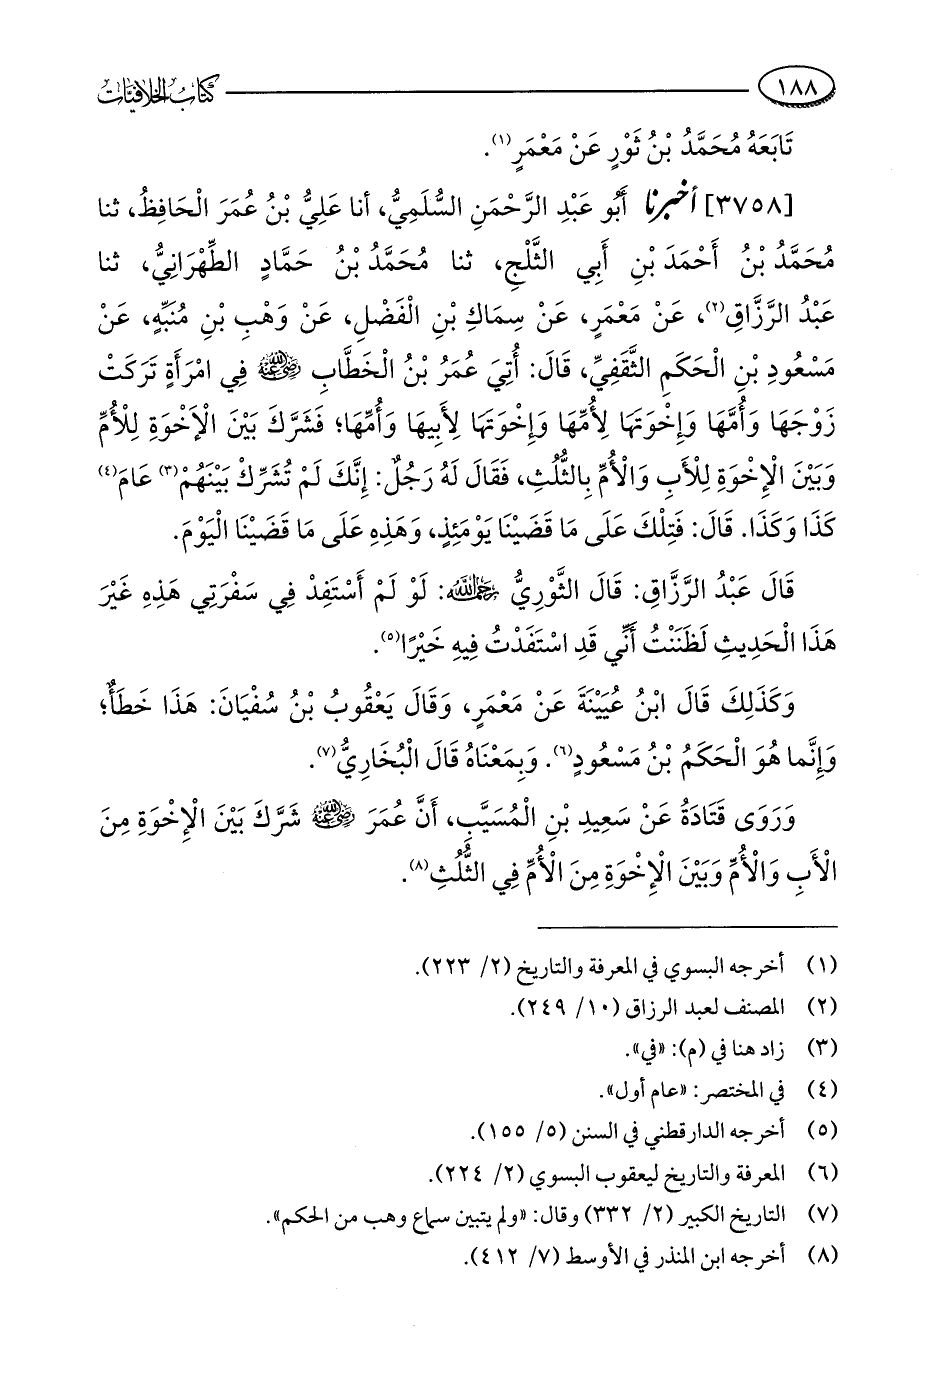 ١٨٨ كتاب الخلافيات
تَابَعَهُ مُحَمَّدُ بْنُ ثَوْرٍ عَنْ مَعْمَرٍ(١).
[٣٧٥٨] أخبرنا أَبُو عَبْدِ الرَّحْمَنِ السُّلَمِيُّ، أنا عَلِيُّ بْنُ عُمَرَ الْحَافِظُ، ثنا
مُحَمَّدُ بْنُ أَحْمَدَ بْنِ أَبِي الثَّلْجِ، ثنا مُحَمَّدُ بْنُ حَمَّادٍ الطِّهْرَانِيُّ، ثنا
عَبْدُ الرَّزَّاقِ(٢)، عَنْ مَعْمَرٍ، عَنْ سِمَاكِ بْنِ الْفَضْلِ، عَنْ وَهْبِ بْنِ مُنَبِّهٍ، عَنْ
مَسْعُودِ بْنِ الْحَكَمِ الثَّقَفِيِّ، قَالَ: أُتِيَ عُمَرُ بْنُ الْخَطَّابِ رضي الله عنه فِي امْرَأَةٍ تَرَكَتْ
زَوْجَهَا وَأُمَّهَا وَإِخْوَتَهَا لِأُمِّهَا وَإِخْوَتَهَا لِأَبِيهَا وَأُمِّهَا؛ فَشَرَّكَ بَيْنَ الْإِخْوَةِ لِلْأُمِّ
وَبَيْنَ الْإِخْوَةِ لِلْأَبِ وَالْأُمِّ بِالثُّلُثِ، فَقَالَ لَهُ رَجُلٌ: إِنَّكَ لَمْ تُشَرِّكْ بَيْنَهُمْ(٣) عَامَ(٤)
كَذَا وَكَذَا. قَالَ: فَتِلْكَ عَلَى مَا قَضَيْنَا يَوْمَئِذٍ، وَهَذِهِ عَلَى مَا قَضَيْنَا الْيَوْمَ.
قَالَ عَبْدُ الرَّزَّاقِ: قَالَ الثَّوْرِيُّ رحمه الله: لَوْ لَمْ أَسْتَفِدْ فِي سَفْرَتِي هَذِهِ غَيْرَ
هَذَا الْحَدِيثِ لَظَنَنْتُ أَنِّي قَدِ اسْتَفَدْتُ فِيهِ خَيْرًا(٥).
وَكَذَلِكَ قَالَ ابْنُ عُيَيْنَةَ عَنْ مَعْمَرٍ، وَقَالَ يَعْقُوبُ بْنُ سُفْيَانَ: هَذَا خَطَأٌ؛
وَإِنَّما هُوَ الْحَكَمُ بْنُ مَسْعُودٍ(٦). وَبِمَعْنَاهُ قَالَ الْبُخَارِيُّ(٧).
وَرَوَى قَتَادَةُ عَنْ سَعِيدِ بْنِ الْمُسَيَّبِ، أَنَّ عُمَرَ رضي الله عنه شَرَّكَ بَيْنَ الْإِخْوَةِ مِنَ
الْأَبِ وَالْأُمِّ وَبَيْنَ الْإِخْوَةِ مِنَ الْأُمِّ فِي الثُّلُثِ(٨).
(١) أخرجه البسوي في المعرفة والتاريخ (٢/ ٢٢٣).
(٢) المصنف لعبد الرزاق (١٠/ ٢٤٩).
(٣) زاد هنا في (م): «في».
(٤) في المختصر: «عام أول».
(٥) أخرجه الدارقطني في السنن (٥/ ١٥٥).
(٦) المعرفة والتاريخ ليعقوب البسوي (٢/ ٢٢٤).
(٧) التاريخ الكبير (٢/ ٣٣٢) وقال: «ولم يتبين سماع وهب من الحكم».
(٨) أخرجه ابن المنذر في الأوسط (٧/ ٤١٢).